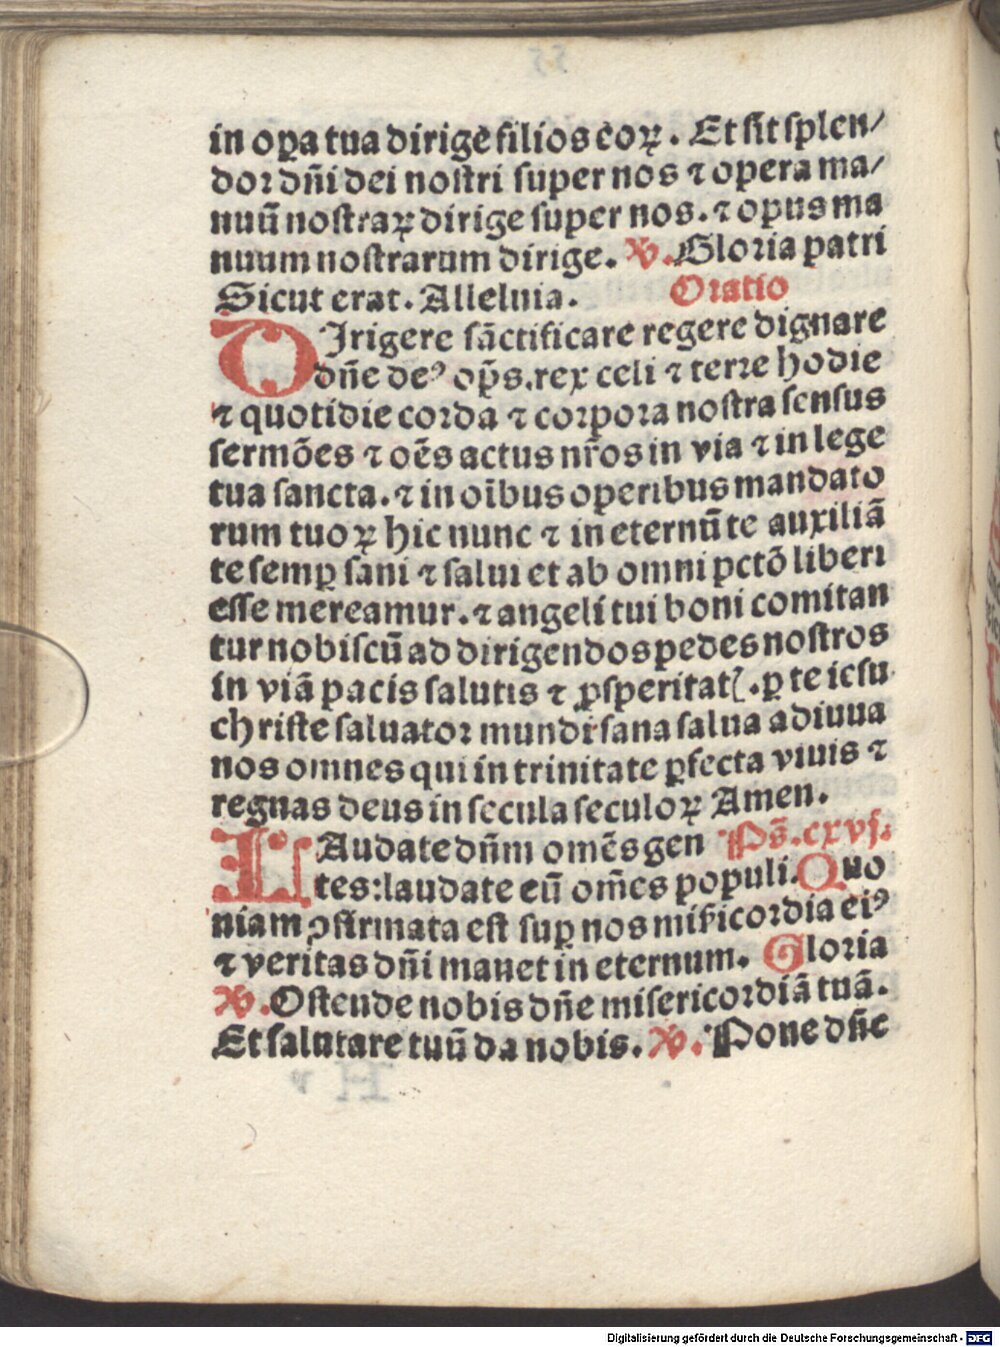 in oꝑa tua dirige filios eoꝝ. Et sit splen/
dor dn̄i dei nostri super nos ⁊ opera ma/
nuū nostraꝝ dirige super nos. ⁊ opus ma
nuum nostrarum dirige. ℣. Gloria patri
Sicut erat. Alleluia. Oratio
DIrigere sāctificare regere dignare
dn̄e deꝰ op̄s. rex celi ⁊ terre hodie
⁊ quotidie corda ⁊ corpora nostra sensus
sermōes ⁊ oēs actus nr̄os in via ⁊ in lege
tua sancta. ⁊ in oībus operibus mandato
rum tuoꝝ hic nunc ⁊ in eternū te auxiliā
te semꝑ sani ⁊ salui et ab omni pctō liberi
esse mereamur. ⁊ angeli tui boni comitan
tur nobiscū ad dirigendos pedes nostros
in viā pacis salutis ⁊ ꝓsperitatꝭ. ꝑ te iesu
christe saluator mundi sana salua adiuua
nos omnes qui in trinitate ꝑfecta viuis ⁊
regnas deus in secula seculoꝝ Amen.
LAudate dn̄m omēs gen Ps̄. cxvj.
tes: laudate eū om̄es populi. Quo
niam ꝯfirmata est suꝑ nos mīficordia eiꝰ
⁊ veritas dn̄i manet in eternum. Gloria
℣. Ostende nobis dn̄e misericordiā tuā.
Et salutare tuū da nobis. ℣. Pone dn̄e
Digitalisierung gefördert durch die Deutsche Forschungsgemeinschaft - DFG